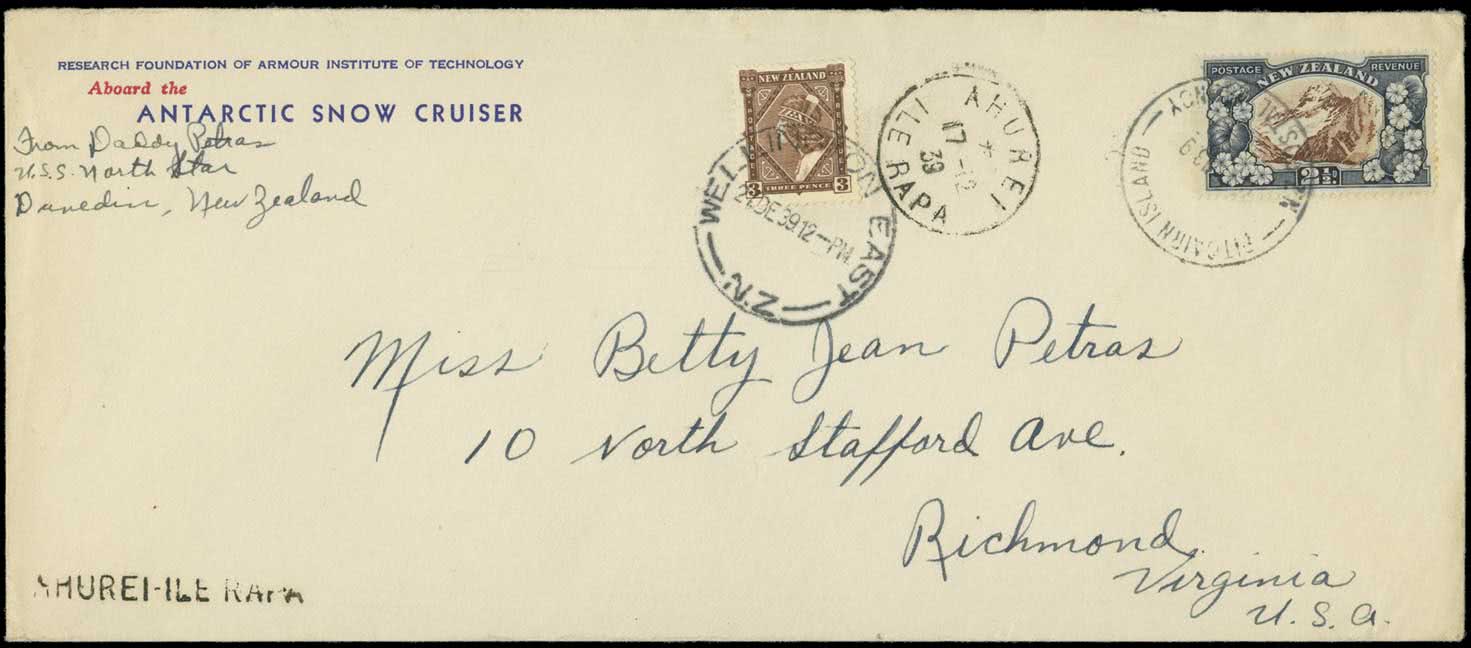 RESEARCH FOUNDATION OF ARMOUR INSTITUTE OF TECHNOLOGY
Aboard the
ANTARCTIC SNOW CRUISER
From Daddy Petras
U.S.S. North Star
Dunedin, New Zealand
NEW ZEALAND
3 THREE PENCE 3
WELLINGTON EAST
21DE3912-PM.
N.Z.
AHUREI
17-12
39
ILE RAPA
POSTAGE NEW ZEALAND REVENUE
2½D
PITCAIRN ISLAND
Miss Betty Jean Petras
10 North Stafford Ave.
Richmond,
Virginia
U.S.A.
AHUREI-ILE RAPA